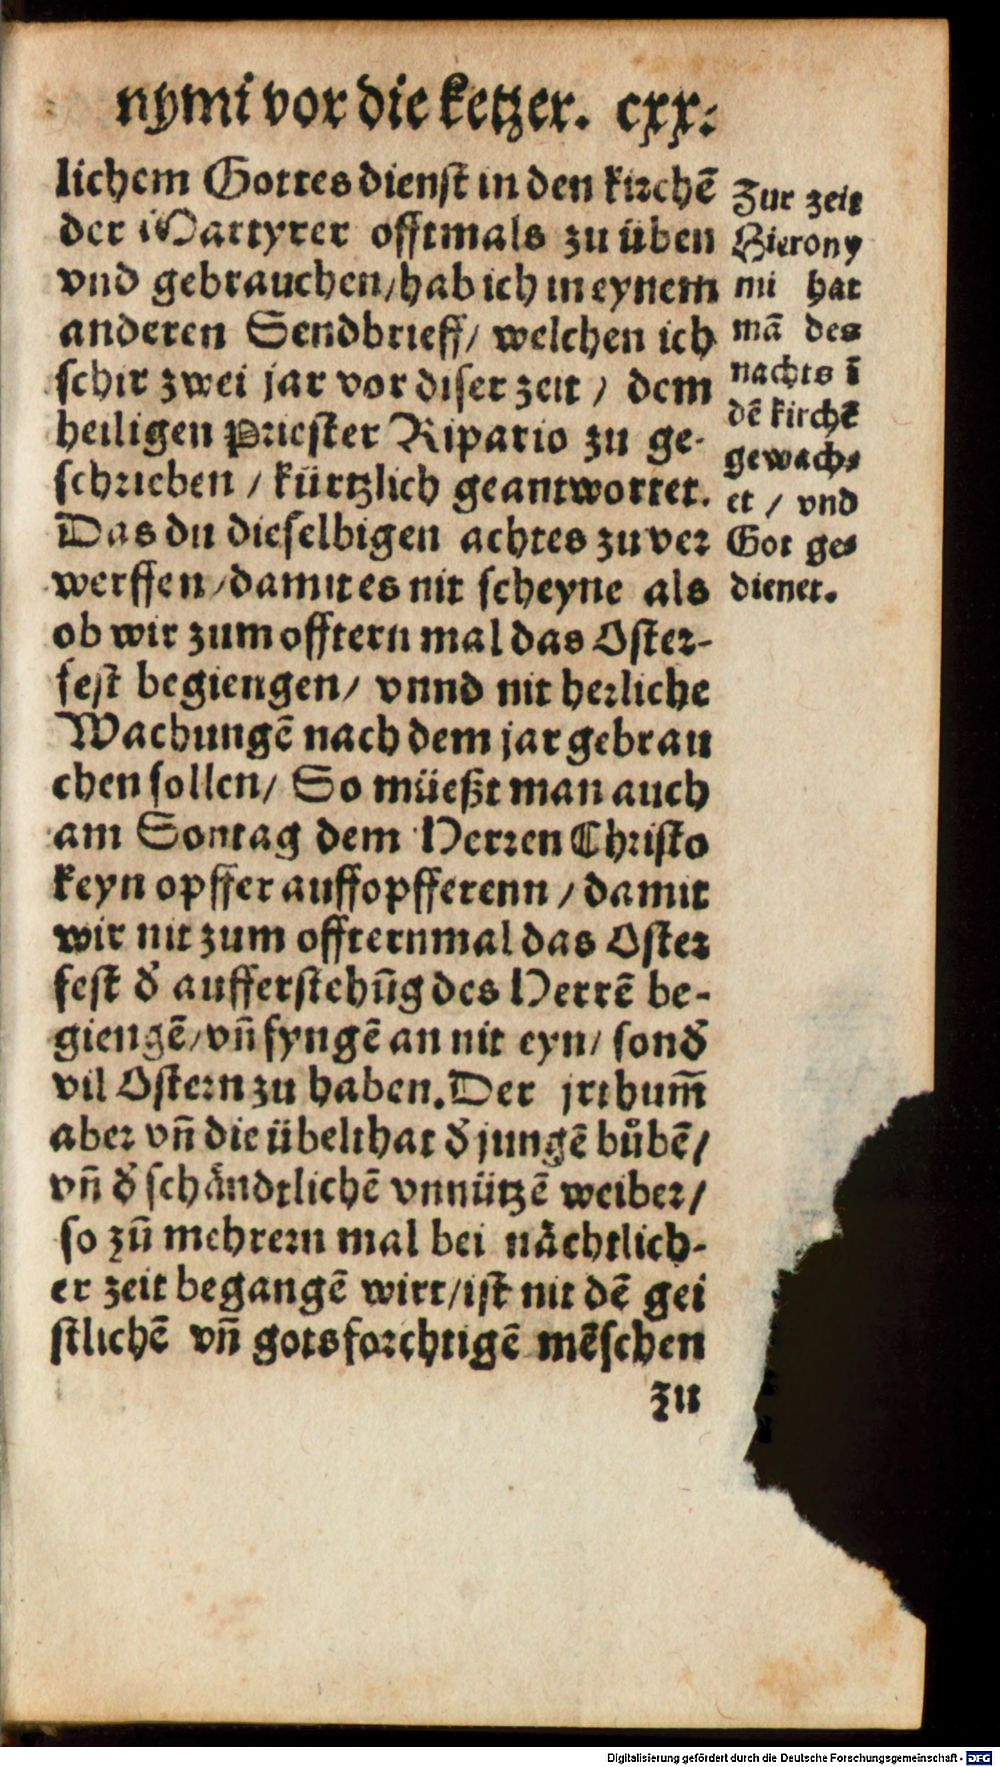 nymi vor die ketzer. cxx.
lichem Gottesdienst in den kirchē
der Martyrer offtmals zu üben
vnd gebrauchen/hab ich in eynem
anderen Sendbrieff/ welchen ich
schir zwei jar vor diser zeit / dem
heiligen Priester Ripario zu ge-
schrieben / kürtzlich geantwortet.
Das du dieselbigen achtes zu ver
werffen/damit es nit scheyne als
ob wir zum offtern mal das Oster-
fest begiengen/ vnnd nit herliche
Wachungē nach dem jar gebrau
chen sollen/ So müeßt man auch
am Sontag dem Herren Christo
keyn opffer auffopfferenn / damit
wir nit zum offternmal das Oster
fest d̄ aufferstehūg des Herrē be-
giengē/vn̄ fyngē an nit eyn/ sond̄
vil Ostern zu haben. Der jrthum̄
aber vn̄ die übelthat d̄ jungē bůbē/
vn̄ d̄ schändtlichē vnnützē weiber/
so zū mehrern mal bei nächtlich-
er zeit begangē wirt/ist nit dē gei
stlichē vn̄ gotsforchtigē mēschen
zu
Zur zeit
Hierony
mi hat
mā des
nachts ī
dē kirchē
gewach-
et / vnd
Got ge-
dienet.
Digitalisierung gefördert durch die Deutsche Forschungsgemeinschaft - DFG